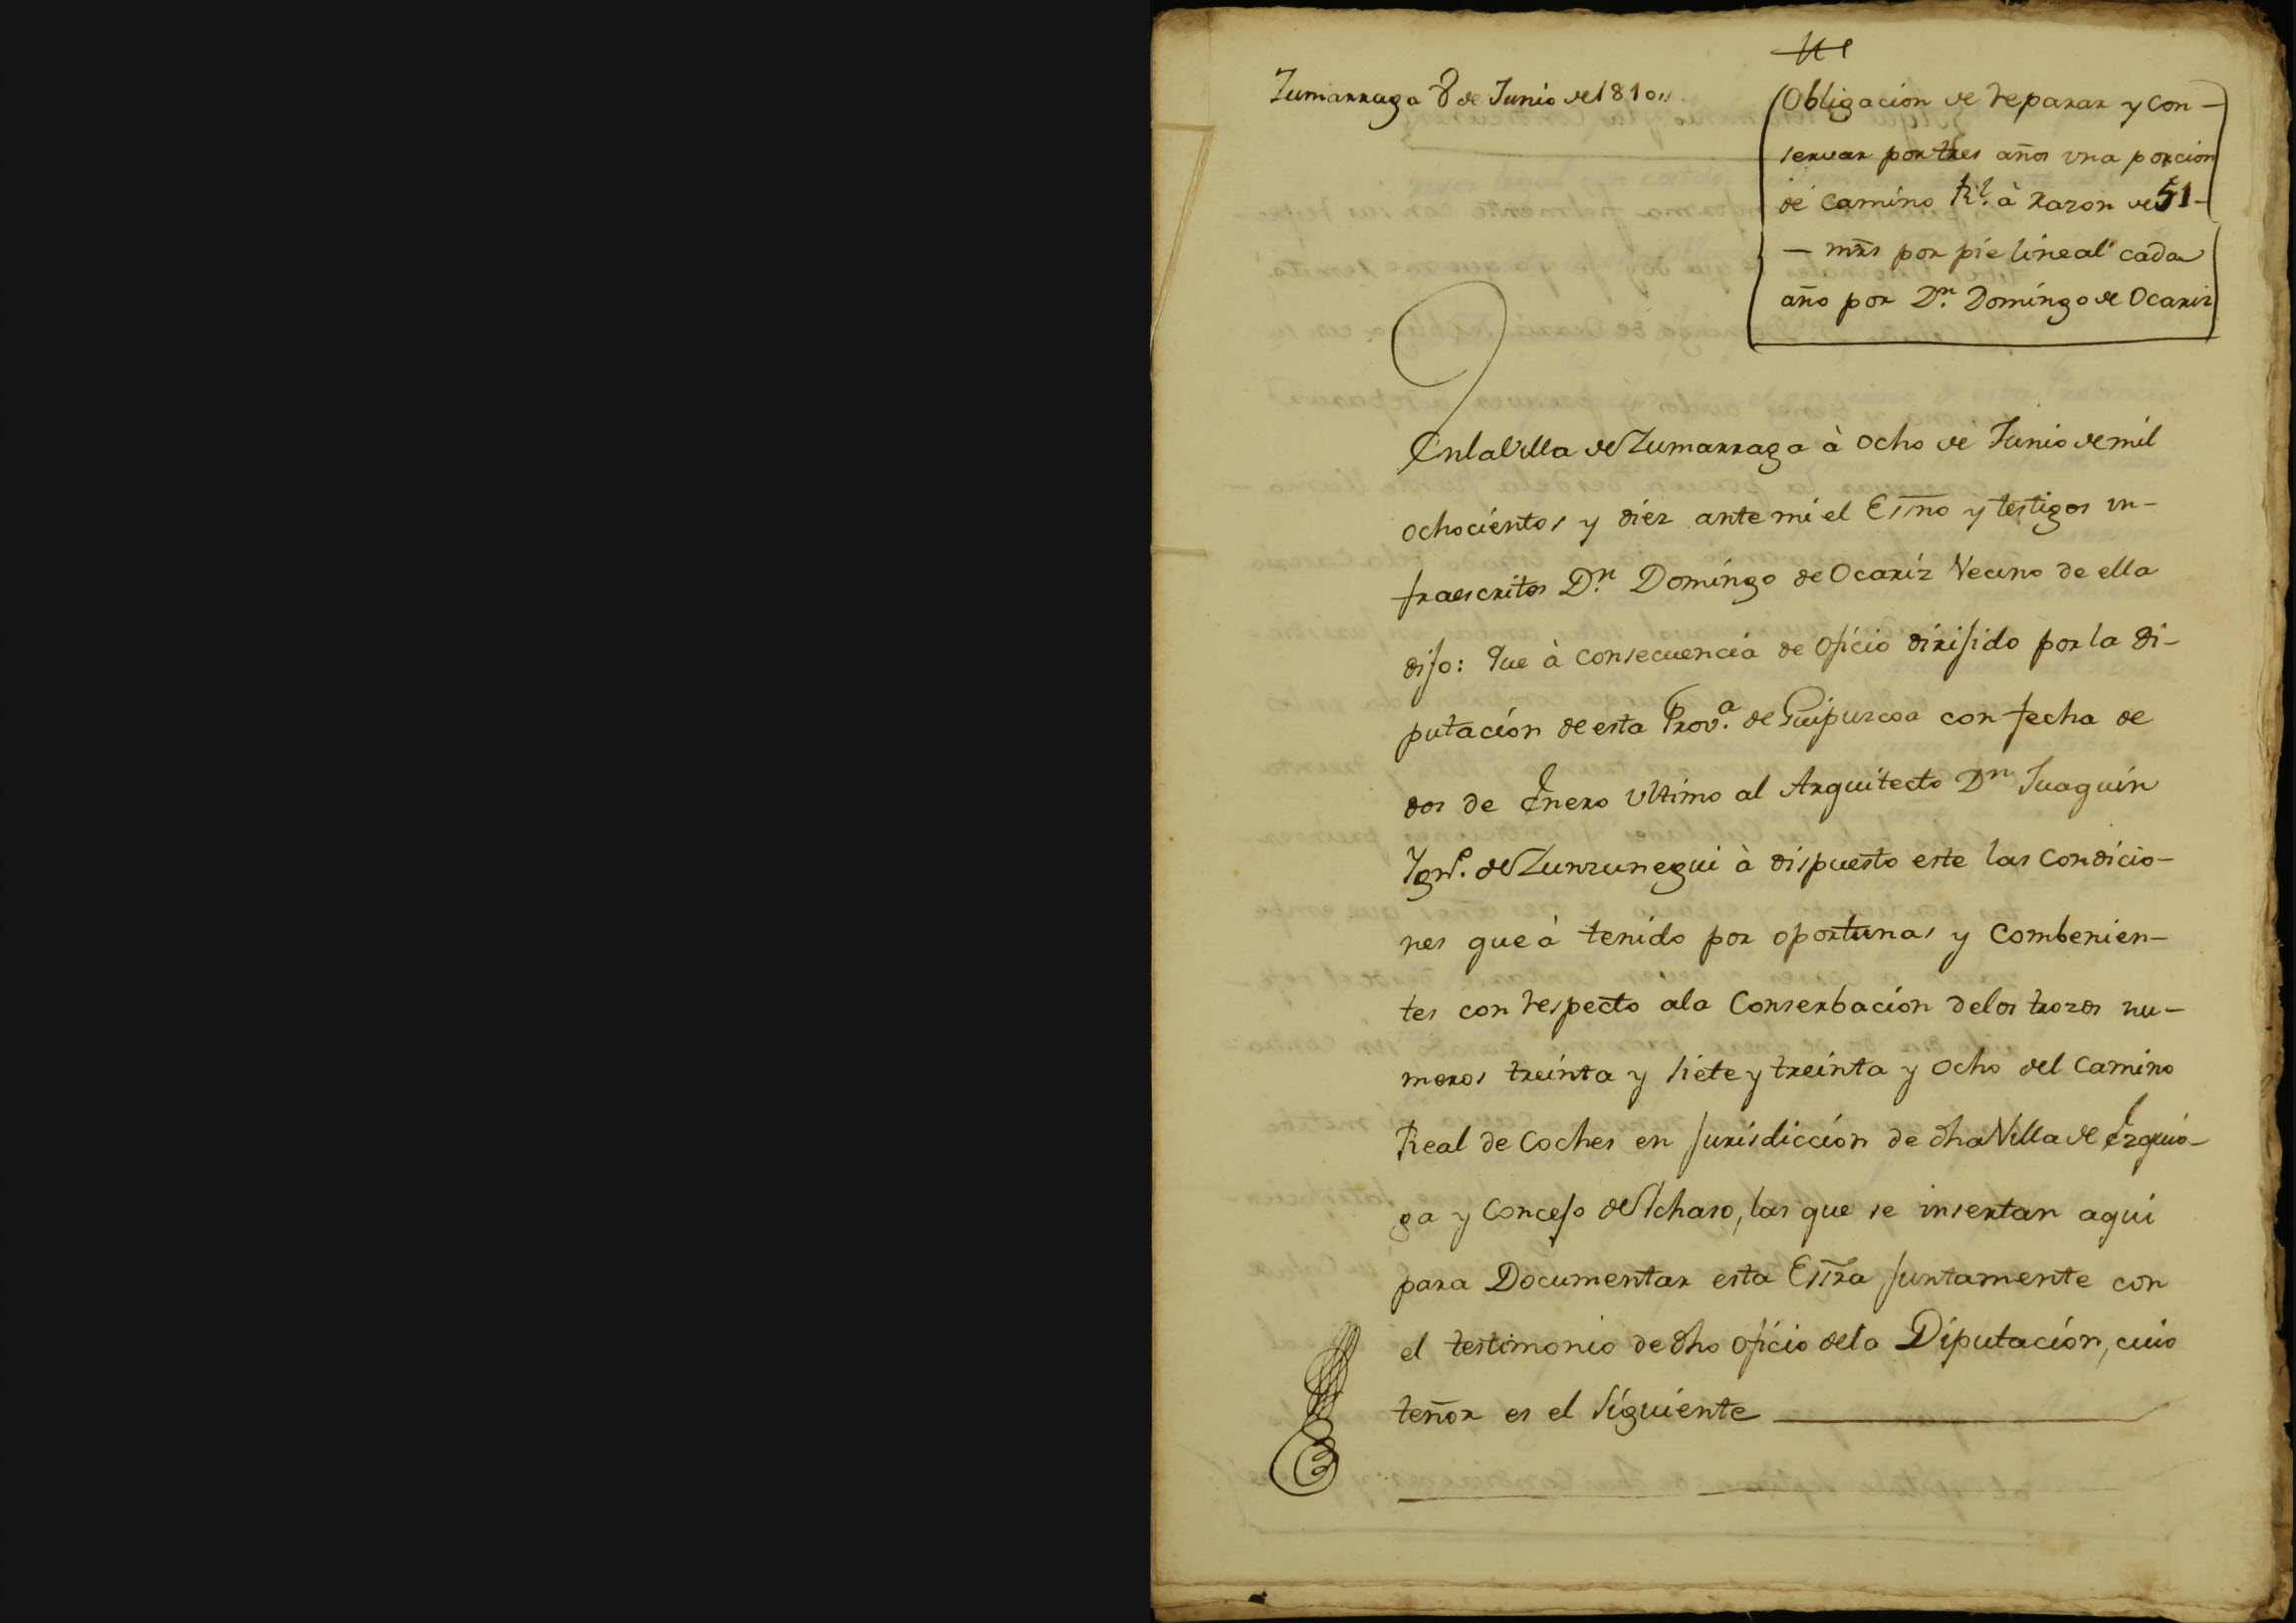 Zumarraga 8 de Junio de 1810,,
Obligacion de reparar y con-
servar por tres años una porcion
de camino Rl. à razon de 51-
- mrs por pie lineal cada
año por Dn. Domingo de Ocariz
En la Villa de Zumarraga à ocho de Junio de mil
ochocientos y diez ante mi el Essno y testigos in-
fraescritos Dn. Domingo de Ocariz Vecino de ella
dijo: Que à consecuencia de oficio dirijido por la Di-
putación de esta Prov.a de Guipuzcoa con fecha de
dos de Enero ultimo al Arquitecto Dn Juaquin
Ygn.o de Zunzunegui à dispuesto este las condicio-
nes que à tenido por oportunas y combenien-
tes con respecto ala Conserbación delos trozos nu-
meros treinta y siete y treinta y ocho del camino
Real de Coches en jurisdicción de dha Villa de Ezquio-
ga y Concejo de Ichaso, las que se insertan aqui
para Documentar esta Essra juntamente con
el testimonio de dho oficio dela Diputación, cuio
tenor es el siguiente